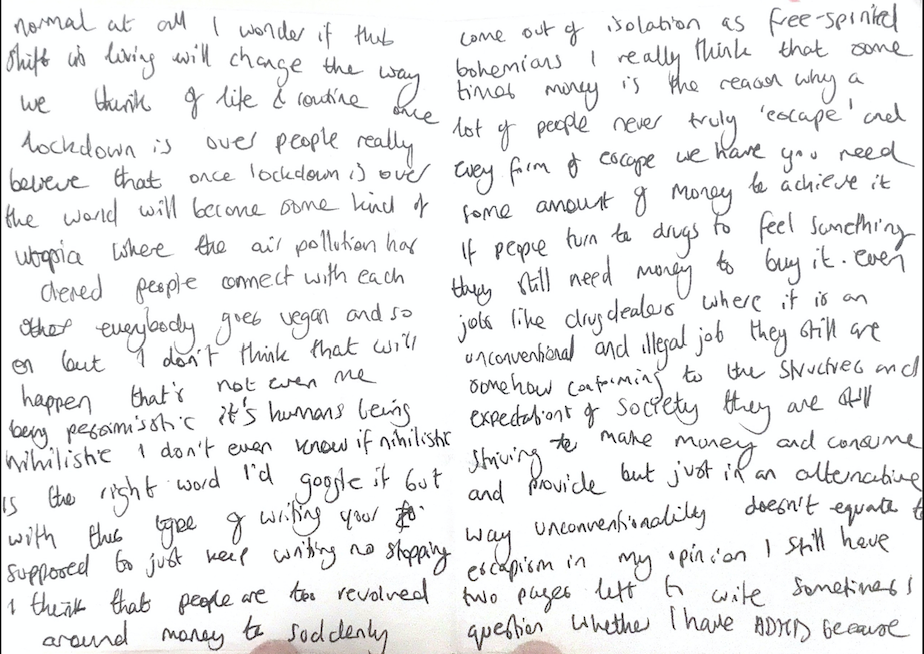 normal at all I wonder if this
shift in living will change the way
we think of life & routine once
lockdown is over people really
believe that once lockdown is over
the world will become some kind of
utopia where the air pollution has
cleared people connect with each
other everybody goes vegan and so
on but I don't think that will
happen that's not even me
being pessimistic it's humans being
nihilistic I don't even know if nihilistic
is the right word I'd google it but
with this type of writing your
supposed to just keep writing no stopping
I think that people are too revolved
around money to suddenly
come out of isolation as free-spirited
bohemians I really think that some
times money is the reason why a
lot of people never truly 'escape' and
every form of escape we have you need
some amount of money to achieve it
If people turn to drugs to feel something
they still need money to buy it. even
jobs like drug dealers where it is an
unconventional and illegal job they still are
somehow conforming to the structures and
expectations of society they are still
striving to make money and consume
and provide but just in an alternative
way unconventionality doesn't equate to
escapism in my opinion I still have
two pages left to write sometimes I
question whether I have ADHD because